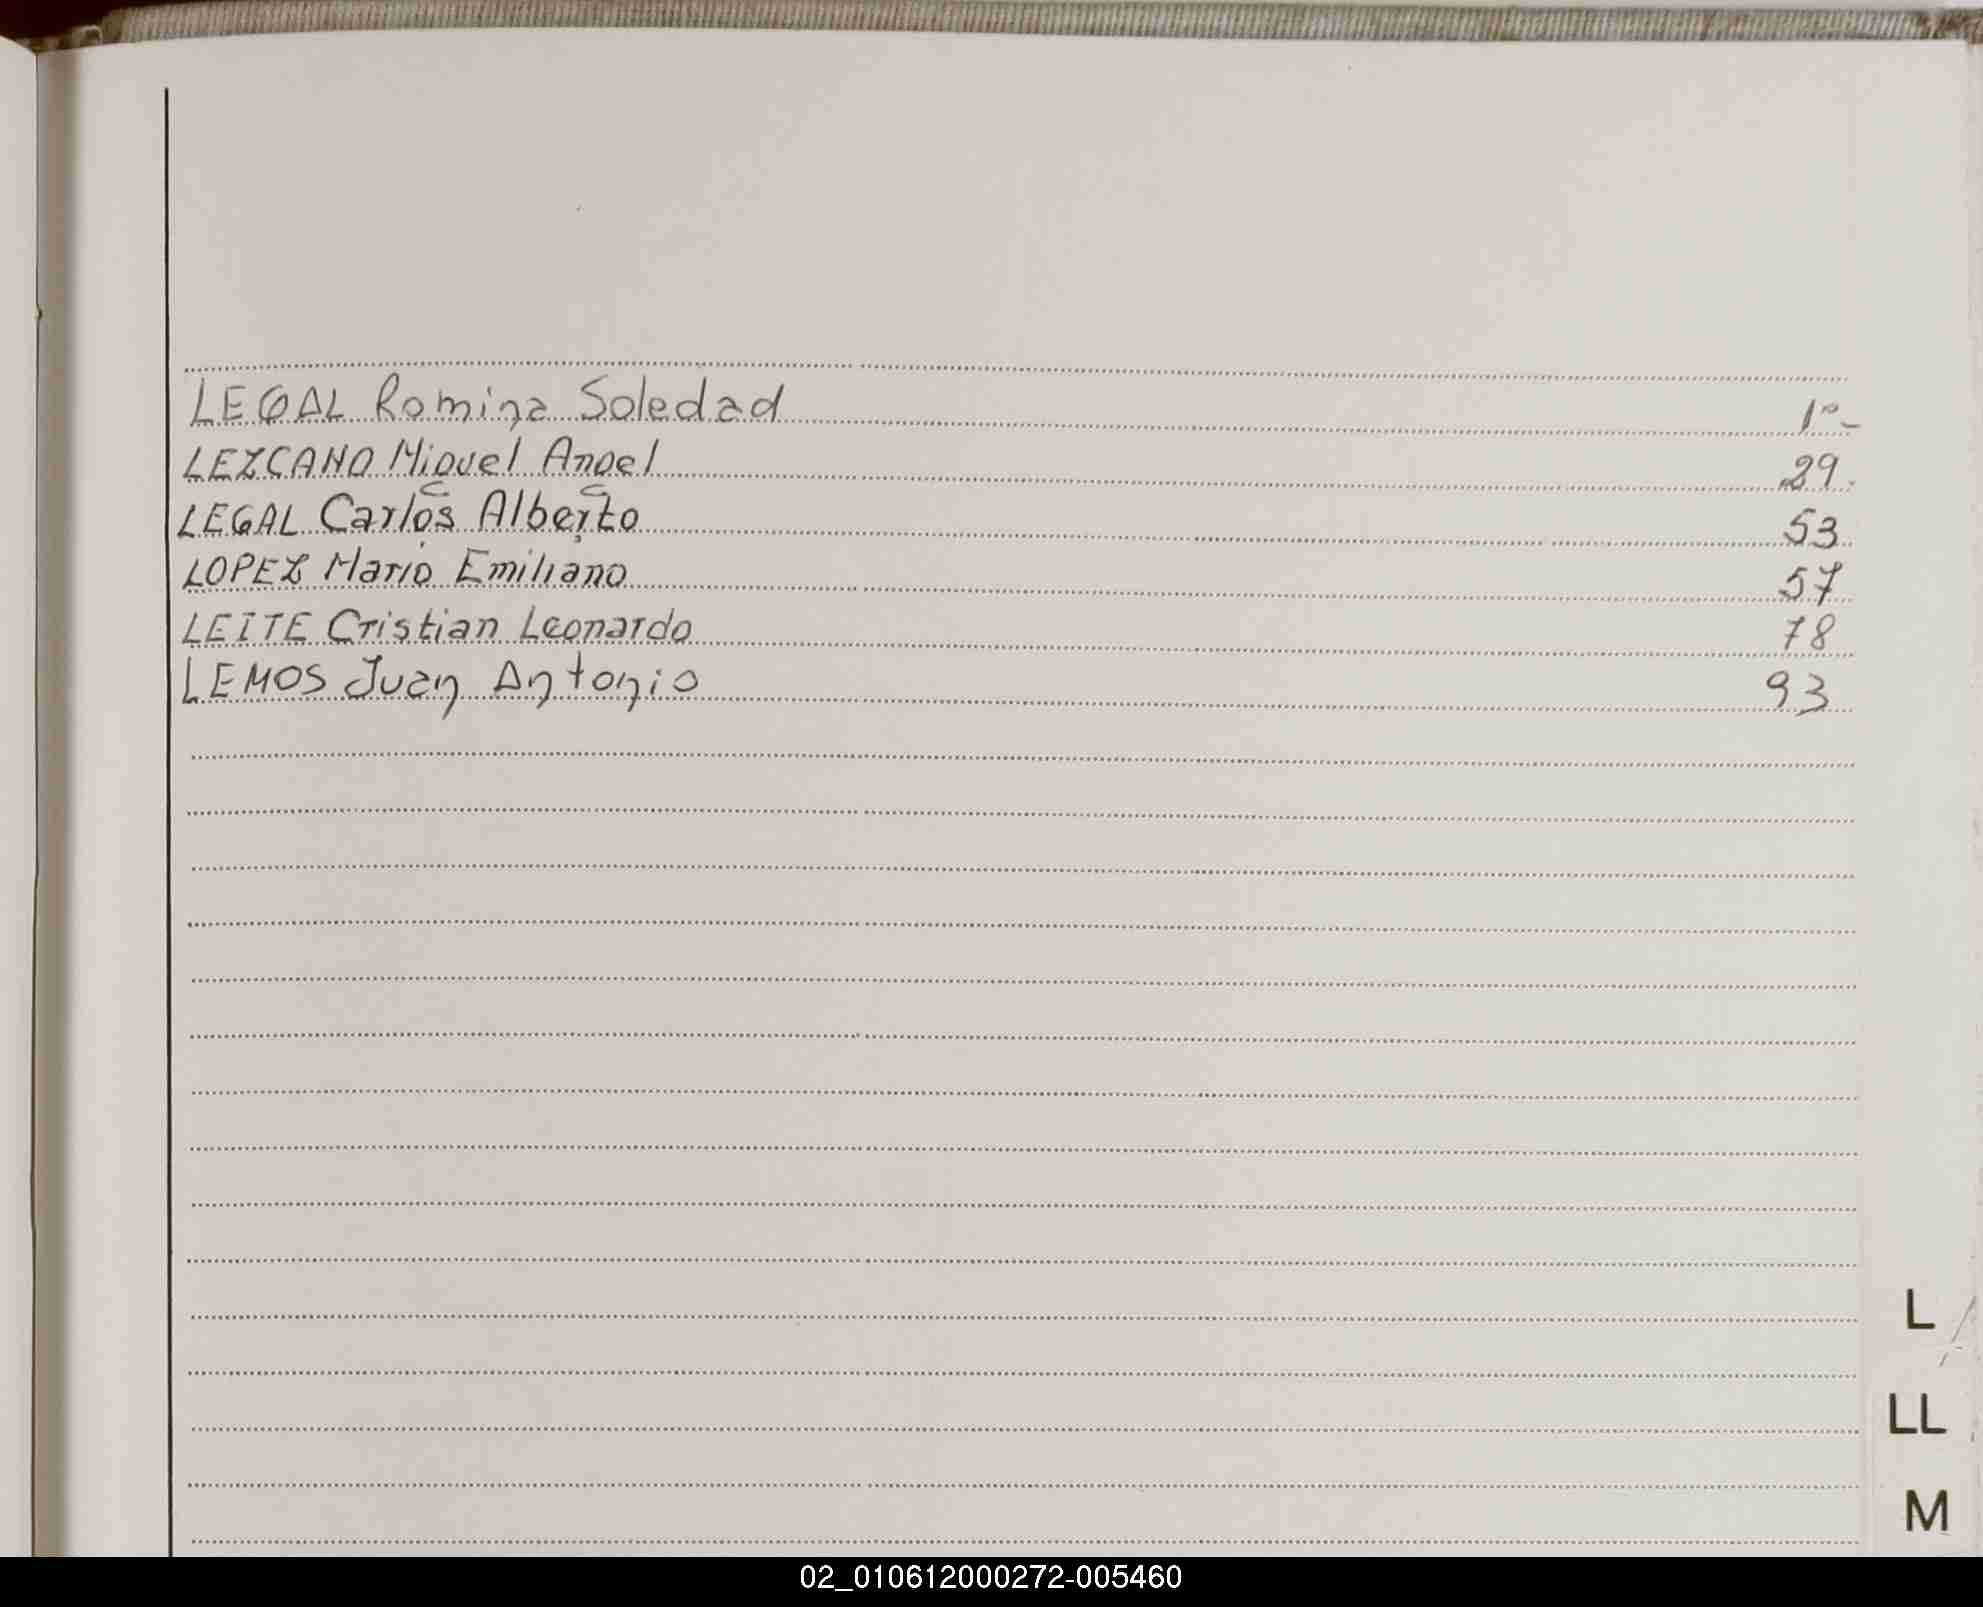 LEGAL Romina Soledad 1º-
LEZCANO Miguel Angel 29.
LEGAL Carlos Alberto 53
LOPEZ Mario Emiliano 57
LEITE Cristian Leonardo 78
LEMOS Juan Antonio 93
L
LL
M
02_010612000272-005460